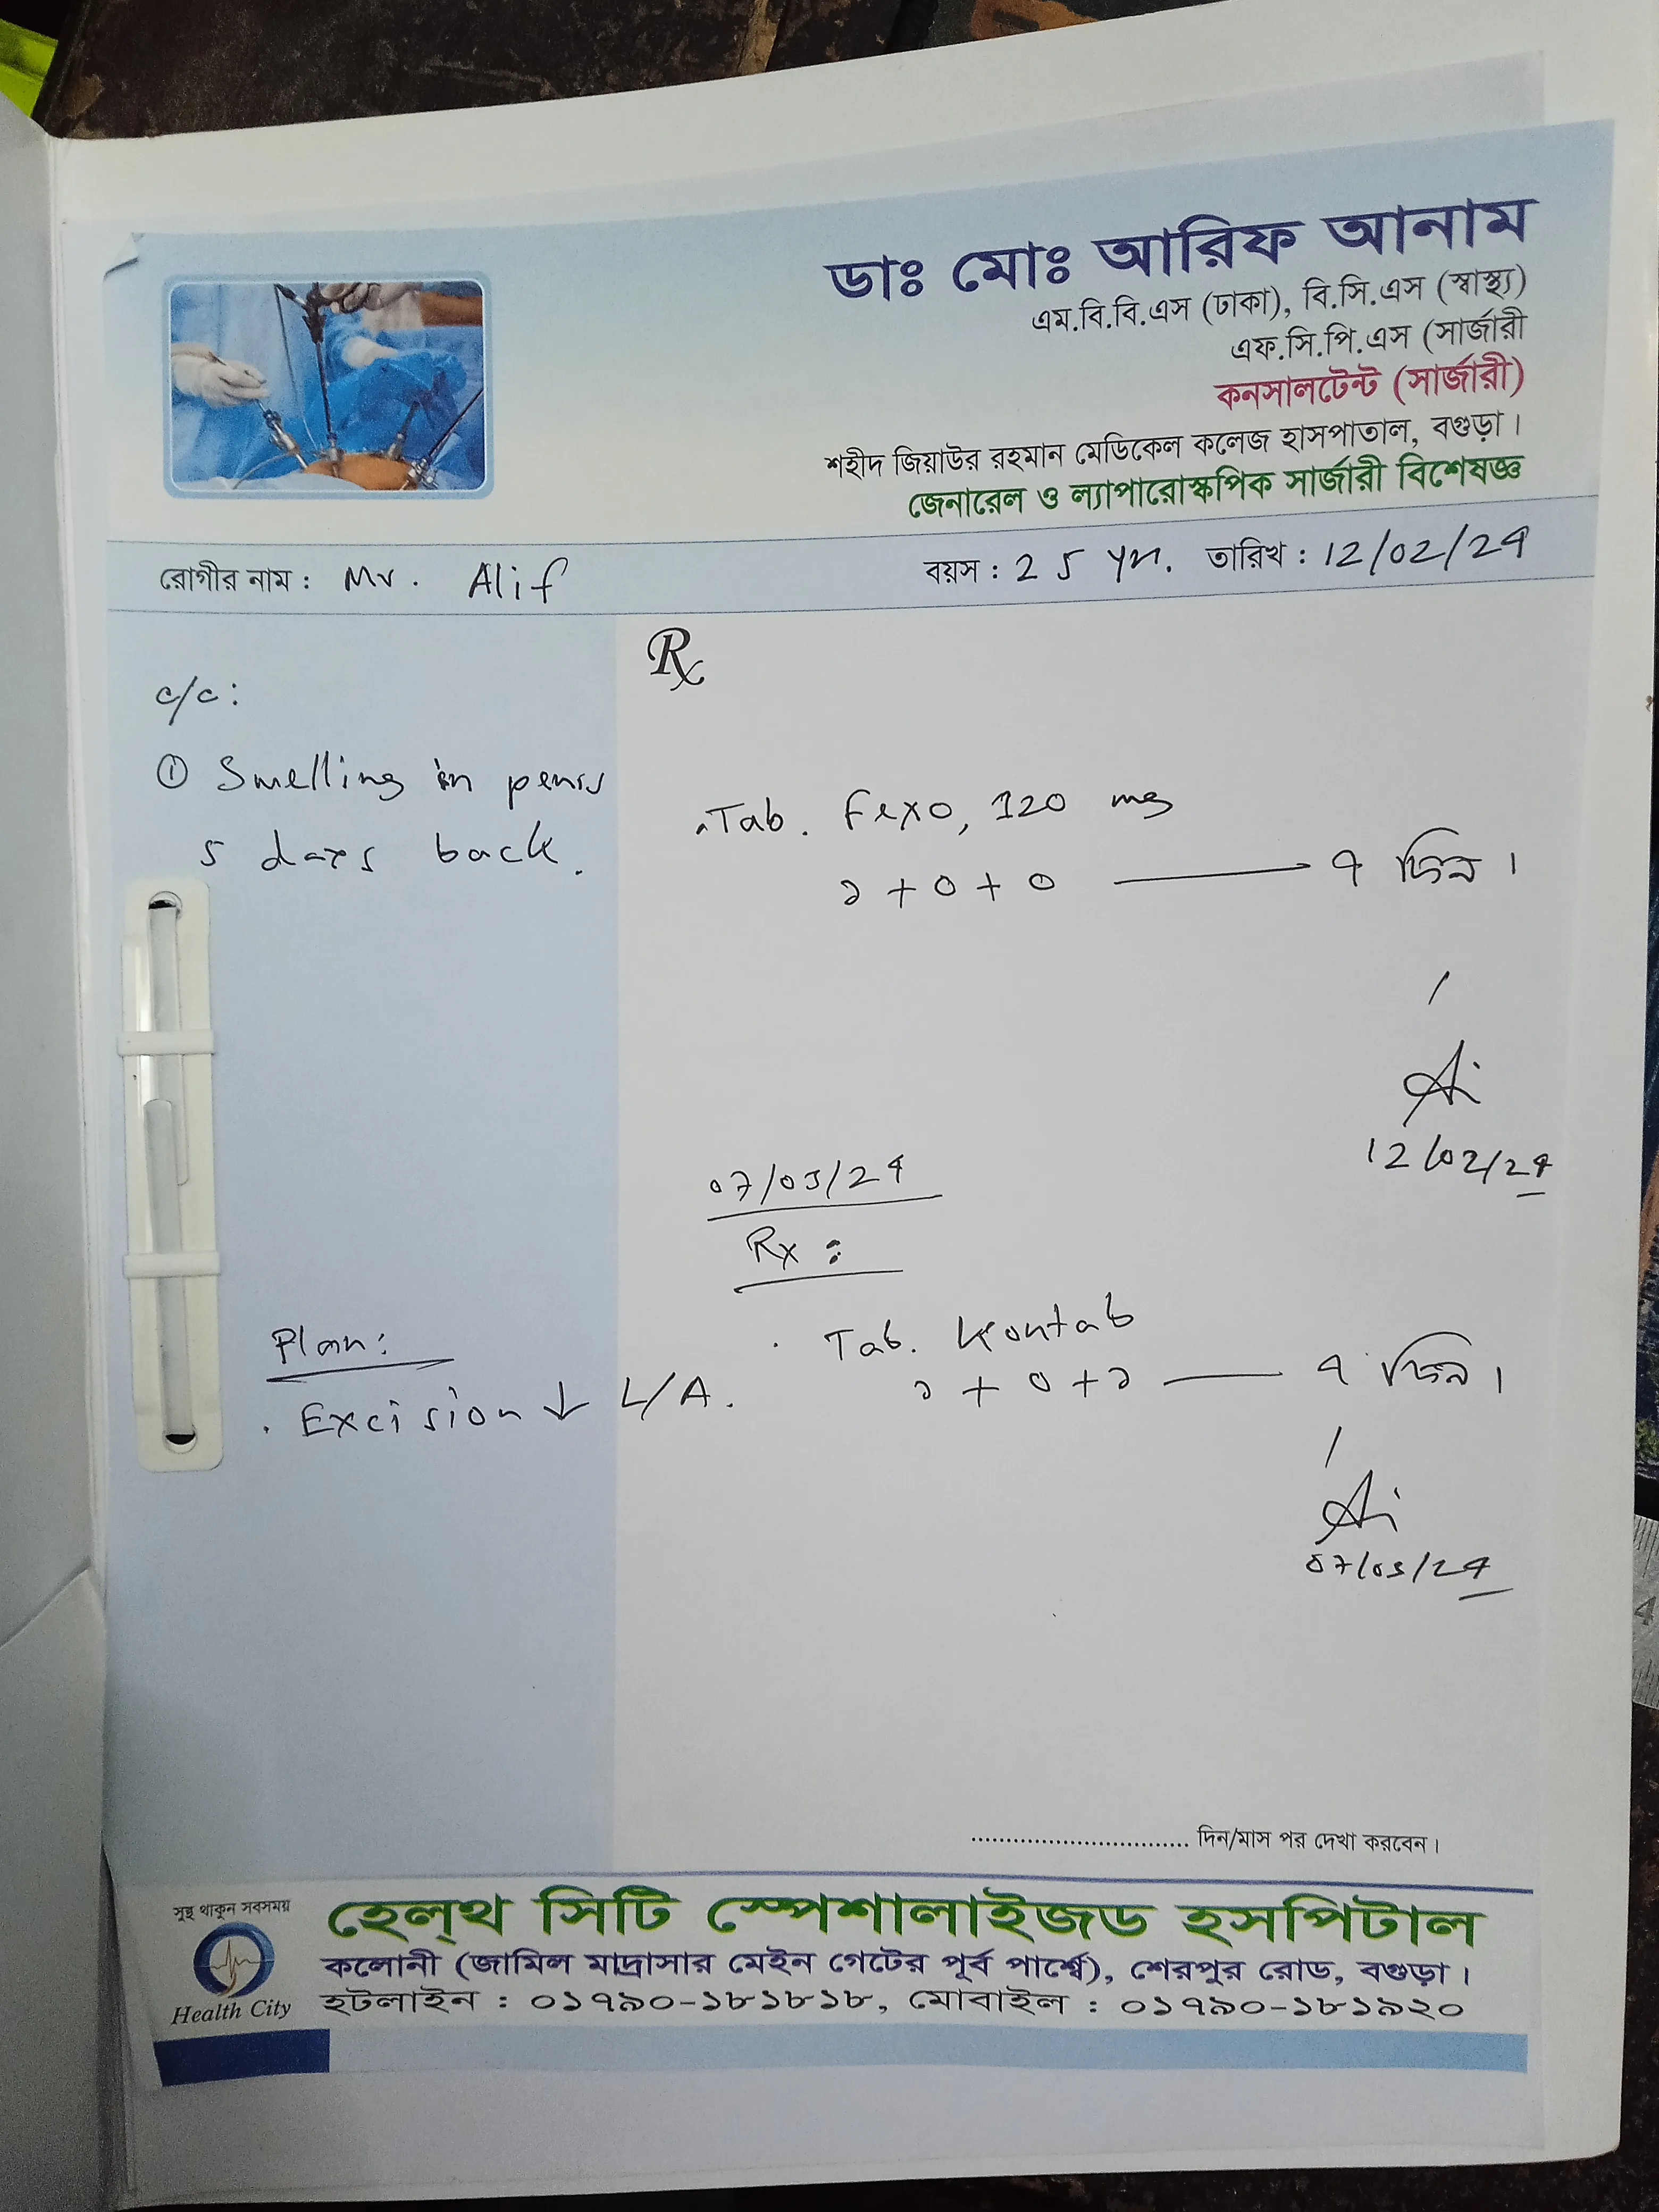 ডাঃ মোঃ আরিফ আনাম
এম.বি.বি.এস (ঢাকা), বি.সি.এস (স্বাস্থ্য)
এফ.সি.পি.এস (সার্জারী
কনসালটেন্ট (সার্জারী)
শহীদ জিয়াউর রহমান মেডিকেল কলেজ হাসপাতাল, বগুড়া।
জেনারেল ও ল্যাপারোস্কপিক সার্জারী বিশেষজ্ঞ
রোগীর নাম : Mr. Alif বয়স : 25 yr. তারিখ : 12/02/24
Rx
c/c:
① Swelling in penis
5 days back.
Tab. Fexo, 120 mg
১ + ০ + ০ ৭ দিন।
12/02/24
07/03/24
Rx :
Plan:
. Excision ↓ L/A.
. Tab. Kontab
১ + ০ + ১ ৭ দিন।
07/03/24
.............................. দিন/মাস পর দেখা করবেন।
সুস্থ থাকুন সবসময়
Health City
হেল্থ সিটি স্পেশালাইজড হসপিটাল
কলোনী (জামিল মাদ্রাসার মেইন গেটের পূর্ব পার্শ্বে), শেরপুর রোড, বগুড়া।
হটলাইন : ০১৭৯০-১৮১৮১৮, মোবাইল : ০১৭৯০-১৮১৯২০
4